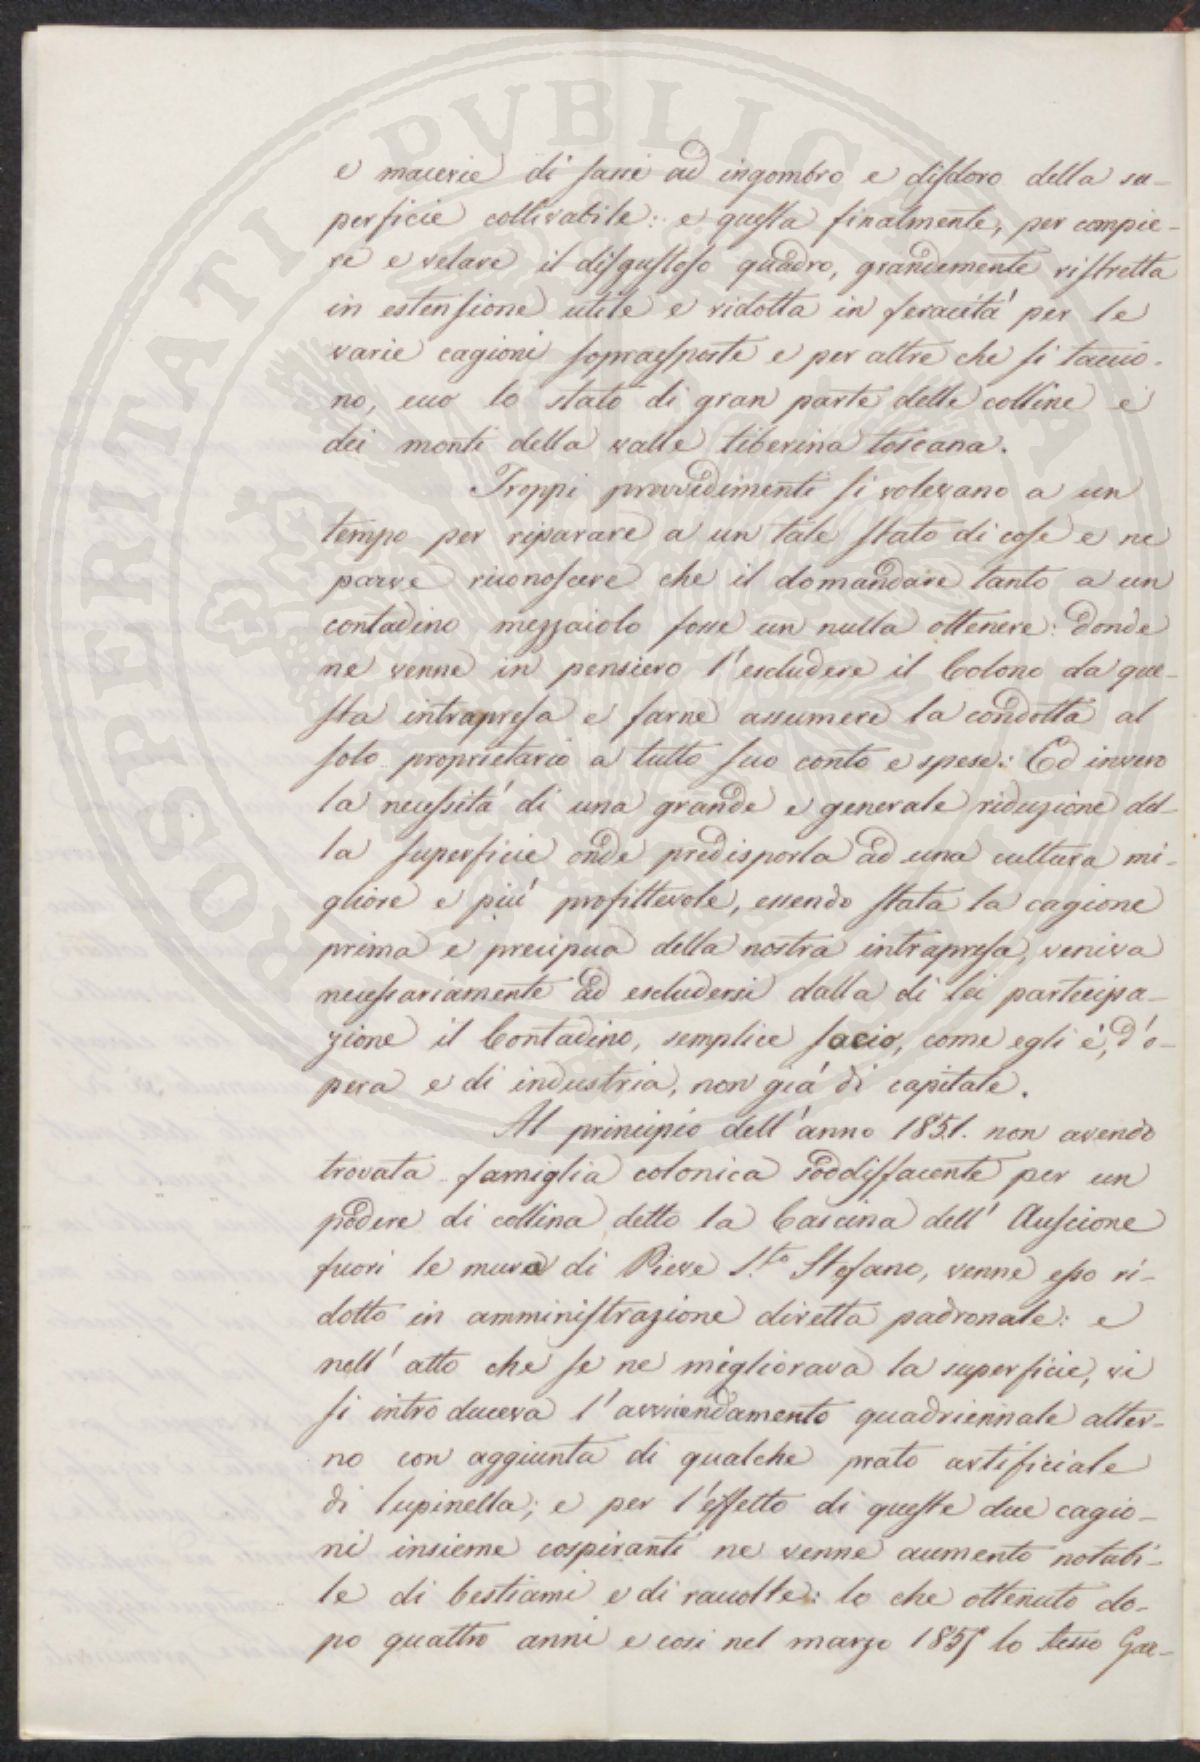 e macerie di sassi ad ingombro e disdoro della su-
perficie coltivabile: e questa finalmente, per compie-
re e velare il disgustoso quadro, grandemente ristretta
in estensione utile e ridotta in feracità per le
varie cagioni sopraesposte e per altre che si taccio-
no, ecco lo stato di gran parte delle colline e
dei monti della valle tiberina toscana.
Troppi provvedimenti si volevano a un
tempo per riparare a un tale stato di cose e ne
parve riconoscere che il domandare tanto a un
contadino mezzaiolo fosse un nulla ottenere: donde
ne venne in pensiero l'escludere il Colono da que-
sta intrapresa e farne assumere la condotta al
solo proprietario a tutto suo conto e spese: Ed invero
la necessità di una grande e generale riduzione del-
la superficie onde predisporla ad una cultura mi-
gliore e più profittevole, essendo stata la cagione
prima e precipua della nostra intrapresa, veniva
necessariamente ad escludersi dalla di lei partecipa-
zione il Contadino, semplice socio, come egli è, d'o-
pera e di industria, non già di capitale.
Al principio dell'anno 1851. non avendo
trovata famiglia colonica soddisfacente per un
podere di collina detto la Cascina dell'Auscione
fuori le mura di Pieve S.to Stefano, venne esso ri-
dotto in amministrazione diretta padronale: e
nell'atto che se ne migliorava la superficie, vi
si introduceva l'avvicendamento quadriennale alter-
no con aggiunta di qualche prato artificiale
di lupinella; e per l'effetto di queste due cagio-
ni insieme cospiranti ne venne aumento notabi-
le di bestiami e di raccolte: lo che ottenuto do-
po quattro anni e così nel marzo 1855 lo stesso
PROSPERITATI PUBLICAE